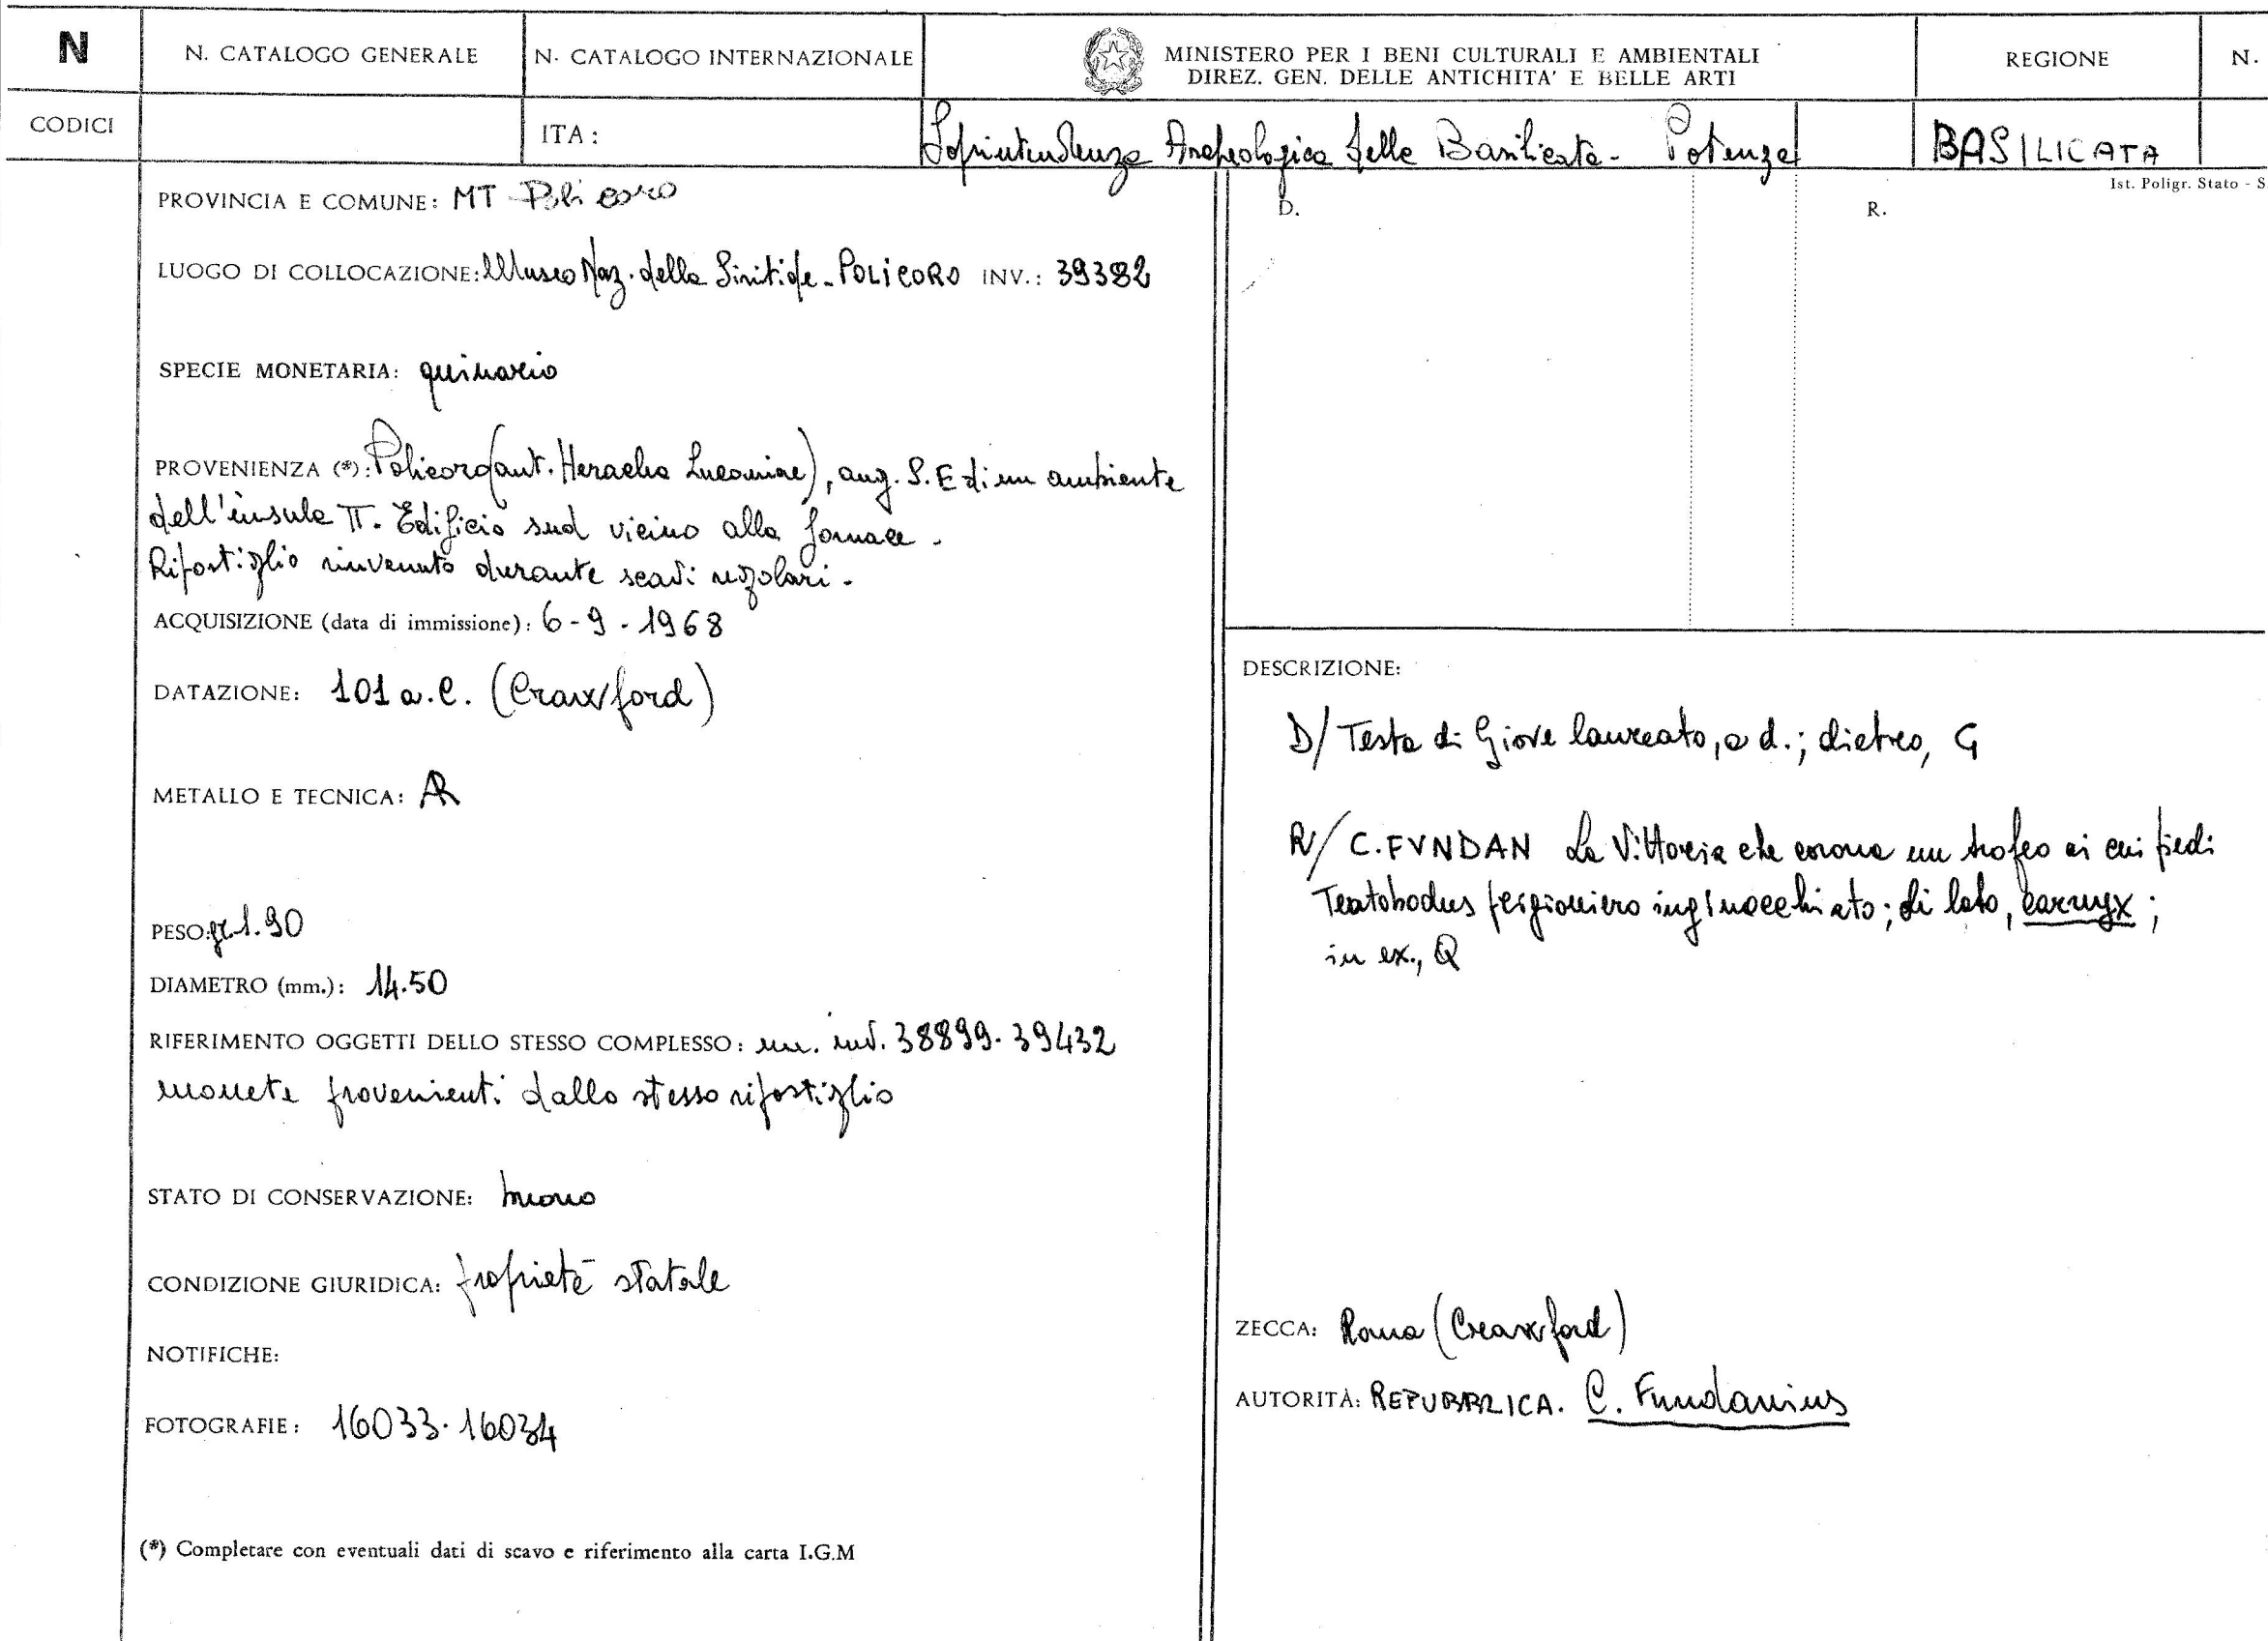 N
N. CATALOGO GENERALE
N. CATALOGO INTERNAZIONALE
MINISTERO PER I BENI CULTURALI E AMBIENTALI
DIREZ. GEN. DELLE ANTICHITA' E BELLE ARTI
REGIONE
N.
CODICI
ITA:
Soprintendenza Archeologica della Basilicata - Potenza
BASILICATA
Ist. Poligr. Stato - S
PROVINCIA E COMUNE: MT Policoro
D.
R.
LUOGO DI COLLOCAZIONE: Museo Naz. della Siritide - POLICORO INV.: 39382
SPECIE MONETARIA: quinario
PROVENIENZA (*): Policoro (ant. Heraclea Lucaniae), ang. S.E di un ambiente
dell'insula II. Edificio sud vicino alla fornace -
Ripostiglio rinvenuto durante scavi regolari -
ACQUISIZIONE (data di immissione): 6-9-1968
DATAZIONE: 101 a.C. (Crawford)
METALLO E TECNICA: AR
PESO: gr. 1.90
DIAMETRO (mm.): 14.50
RIFERIMENTO OGGETTI DELLO STESSO COMPLESSO: nn. inv. 38899-39432
monete provenienti dallo stesso ripostiglio
STATO DI CONSERVAZIONE: buono
CONDIZIONE GIURIDICA: proprietà statale
NOTIFICHE:
FOTOGRAFIE: 16033-16034
(*) Completare con eventuali dati di scavo e riferimento alla carta I.G.M
DESCRIZIONE:
D/ Testa di Giove laureato, a d.; dietro, G
R/ C.FVNDAN La Vittoria che corona un trofeo ai cui piedi
Teutobodus prigioniero inginocchiato; di lato, carnyx;
in ex., Q
ZECCA: Roma (Crawford)
AUTORITÀ: REPUBBLICA. C. Fundanius